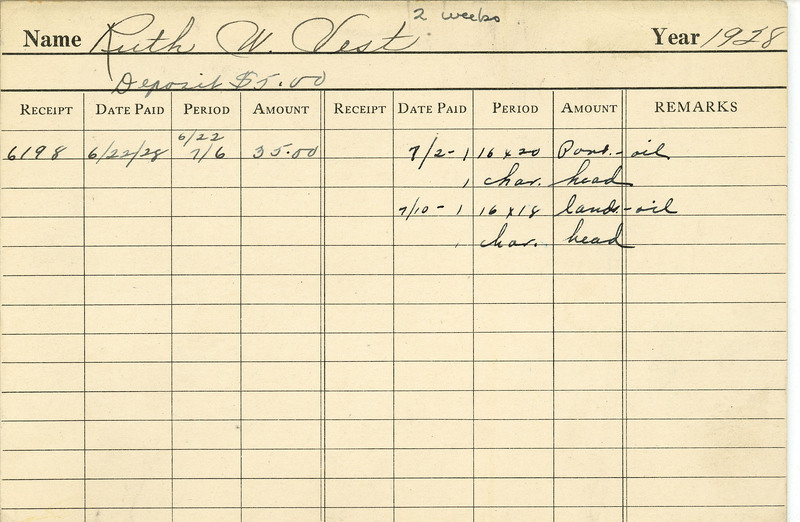 2 weeks
Name Ruth W. Vest Year 1928
Deposit $5.00
RECEIPT DATE PAID PERIOD AMOUNT RECEIPT DATE PAID PERIOD AMOUNT REMARKS
6/22
6198 6/22/28 7/6 35.00 7/2 - 1 16 x 20 Port. - oil
1 char. head
7/10 - 1 16 x 18 lands. - oil
1 char. head